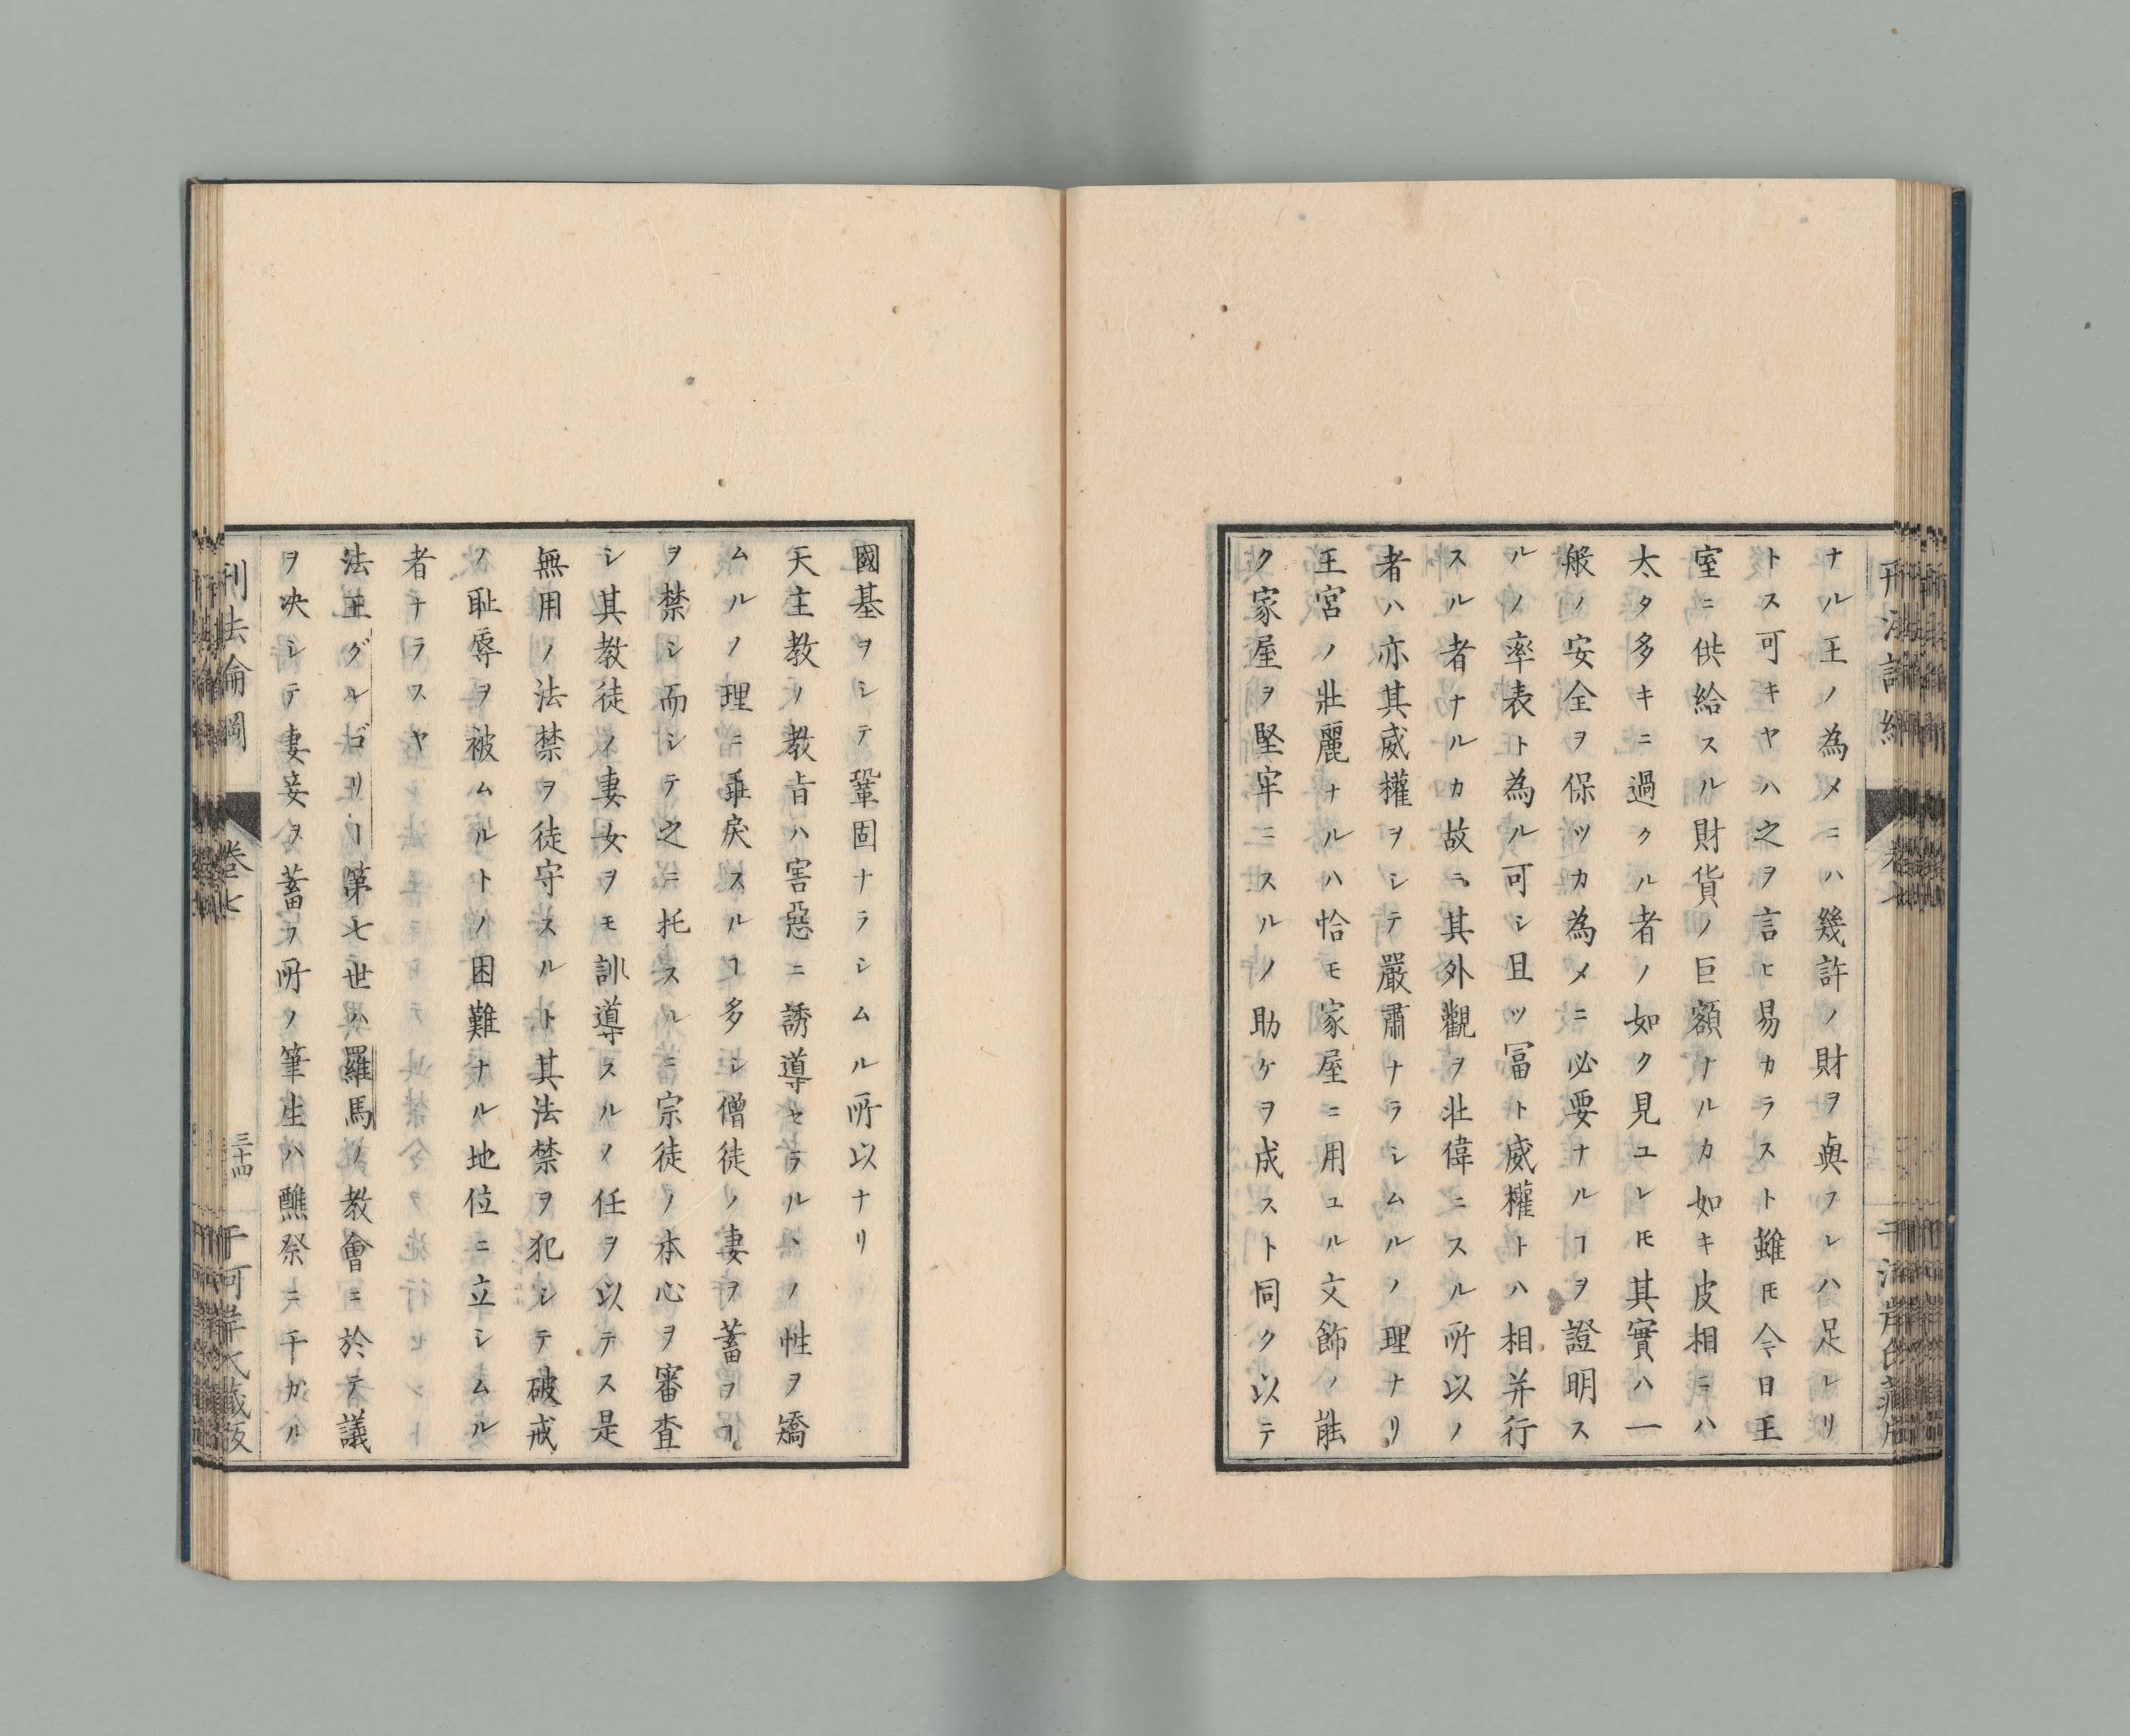 ナル王ノ為メニハ幾許ノ財ヲ與フレハ足レリ
トス可キヤハ之ヲ言ヒ易カラスト雖𪜈今日王
室ニ供給スル財貨ノ巨額ナルカ如キ皮相ニハ
太タ多キニ過クル者ノ如ク見ユレ𪜈其實ハ一
般ノ安全ヲ保ツカ為メニ必要ナルヿヲ證明ス
ルノ率表ト為ル可シ且ツ冨ト威權トハ相并行
スル者ナルカ故ニ其外觀ヲ壯偉ニスル所以ノ
者ハ亦其威權ヲシテ嚴肅ナラシムルノ理ナリ
王宮ノ壯麗ナルハ恰モ家屋ニ用ユル文飾ノ能
ク家屋ヲ堅牢ニスルノ助ケヲ成スト同ク以テ
國基ヲシテ鞏固ナラシムル所以ナリ
天主教ノ教旨ハ害惡ニ誘導セラルヽノ性ヲ矯
ムルノ理ニ乖戾スルヿ多シ僧徒ノ妻ヲ蓄フヿ
ヲ禁シ而シテ之ニ托スルニ宗徒ノ本心ヲ審査
シ其教徒ノ妻女ヲモ訓導スルノ任ヲ以テス是
無用ノ法禁ヲ徒守スルト其法禁ヲ犯シテ破戒
ノ耻辱ヲ被ムルトノ困難ナル地位ニ立シムル
者ナラスヤ
法王グルゴリー第七世ハ羅馬ノ教會ニ於テ議
ヲ决シテ妻妾ヲ蓄フ所ノ筆生ハ醮祭ニ干ガル
刑法論綱
卷七
三十四